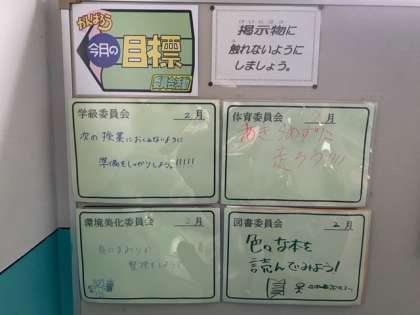 がんばろう
今月の
目標
委員会活動
掲示物に
触れないように
しましょう。
学級委員会 2月
次の授業におくれないように
準備をしっかりしよう。!!!!!
体育委員会 2月
あきらめずに
走ろう!!!
環境美化委員会 2月
整理をしよう
図書委員会 2月
色々な本を
読んでみよう!